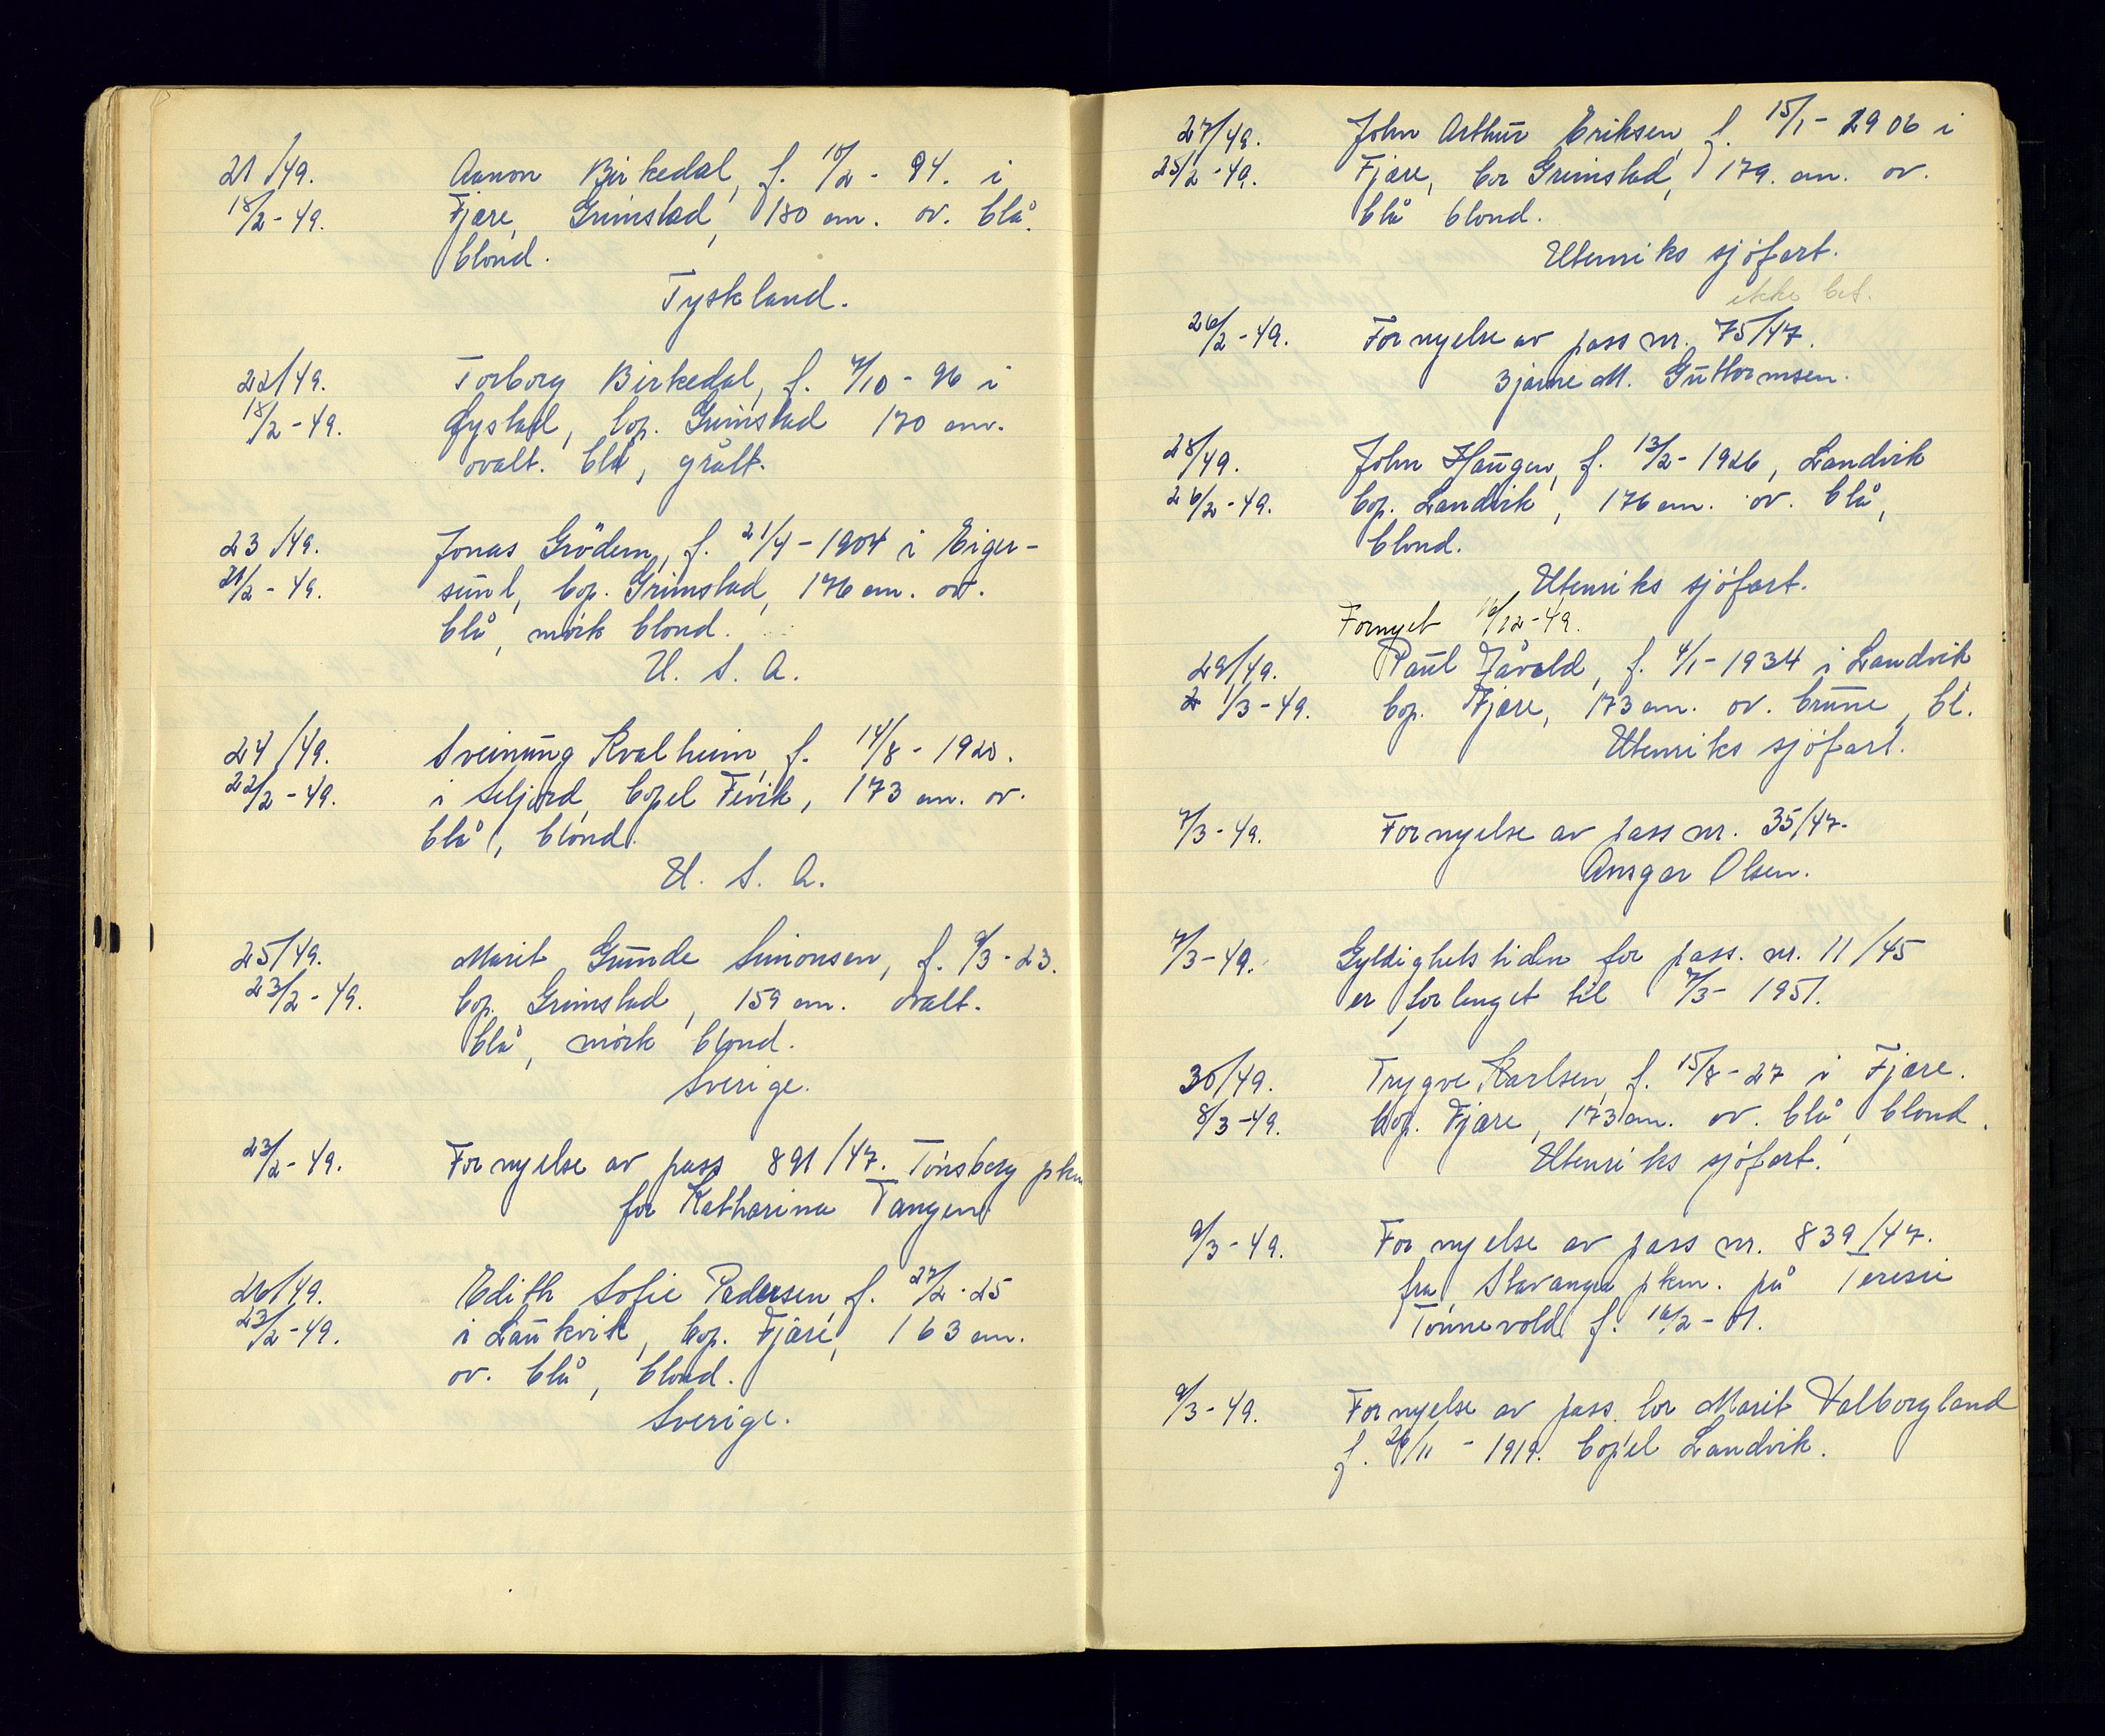 21/49. Aanon Birkedal, f. 10/2 - 94. i
18/2 - 49. Fjære, Grimstad, 180 cm. ov. blå,
blond.
Tyskland.
22/49. Torborg Birkedal, f. 7/10 - 96 i
18/2 - 49. Øystad, bop. Grimstad 170 cm.
ovalt. blå, grått.
23/49. Jonas Grödem, f. 21/4 - 1904 i Eiger-
21/2 - 49. sund, bop. Grimstad, 176 cm. ov.
blå, mörk blond.
U. S. A.
24/49. Sveinung Kvalheim, f. 14/8 - 1920.
22/2 - 49. i Seljord, bopel Fevik, 173 cm. ov.
blå, blond.
U. S. A.
25/49. Marit Gunde Simonsen, f. 9/3 - 23.
23/2 - 49. bop. Grimstad, 159 cm. ovalt.
blå, mörk blond.
Sverige.
23/2 - 49. Fornyelse av pass 891/47. Tönsberg pkm
for Katharina Tangen
26/49. Edith Sofie Pedersen, f. 27/2 - 25
23/2 - 49. i Laukvik, bop. Fjære, 163 cm.
ov. blå, blond.
Sverige.
27/49. John Arthur Eriksen, f. 15/1 - 1906 i
25/2 - 49. Fjære, bor Grimstad, 179. cm. ov.
blå blond.
Utenriks sjöfart.
ikke bet.
26/2 - 49. Fornyelse av pass nr. 75/47.
Bjarne M. Guttormsen.
28/49. John Haugen, f. 13/2 - 1926, Landvik
26/2 - 49. bop. Landvik, 176 cm. ov. blå,
blond.
Utenriks sjöfart.
Fornyet 16/12 - 49.
29/49. Paul Jåvold, f. 4/1 - 1934 i Landvik
1/3 - 49. bop. Fjære, 173 cm. ov. brune, bl.
Utenriks sjöfart.
7/3 - 49. Fornyelse av pass nr. 35/47.
Ansgar Olsen.
7/3 - 49. Gyldighetstiden for pass. nr. 11/45
er forlenget til 7/3 - 1951.
30/49. Trygve Karlsen, f. 15/8 - 27 i Fjære.
8/3 - 49. bop. Fjære, 173 cm. ov. blå, blond.
Utenriks sjöfart.
9/3 - 49. Fornyelse av pass nr. 839/47.
fra Stavanger pkm. på Teresie
Tönnevold f. 16/2 - 01.
9/3 - 49. Fornyelse av pass for Marit Valborgland
f. 26/11 - 1919. bopel Landvik.